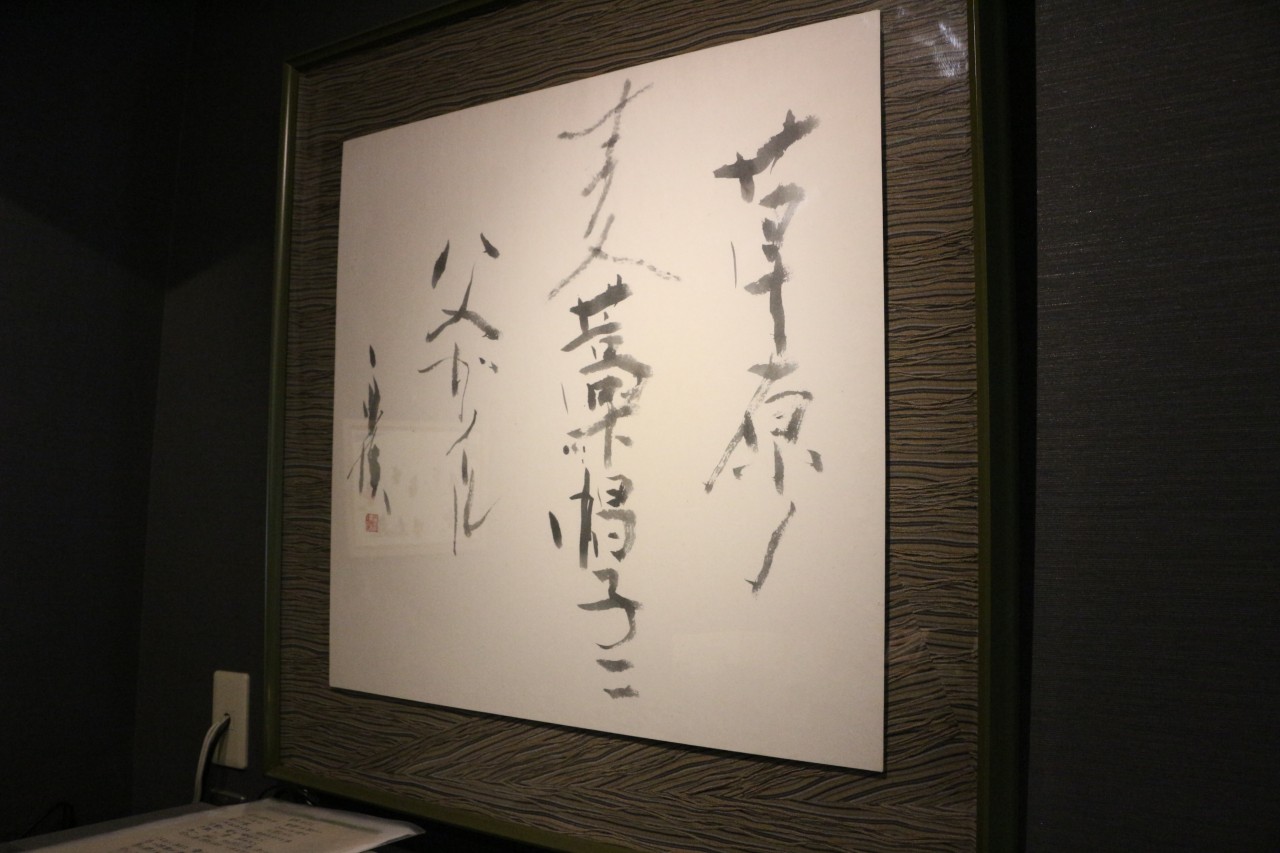 草原ノ
麦藁帽子ニ
父ガイル